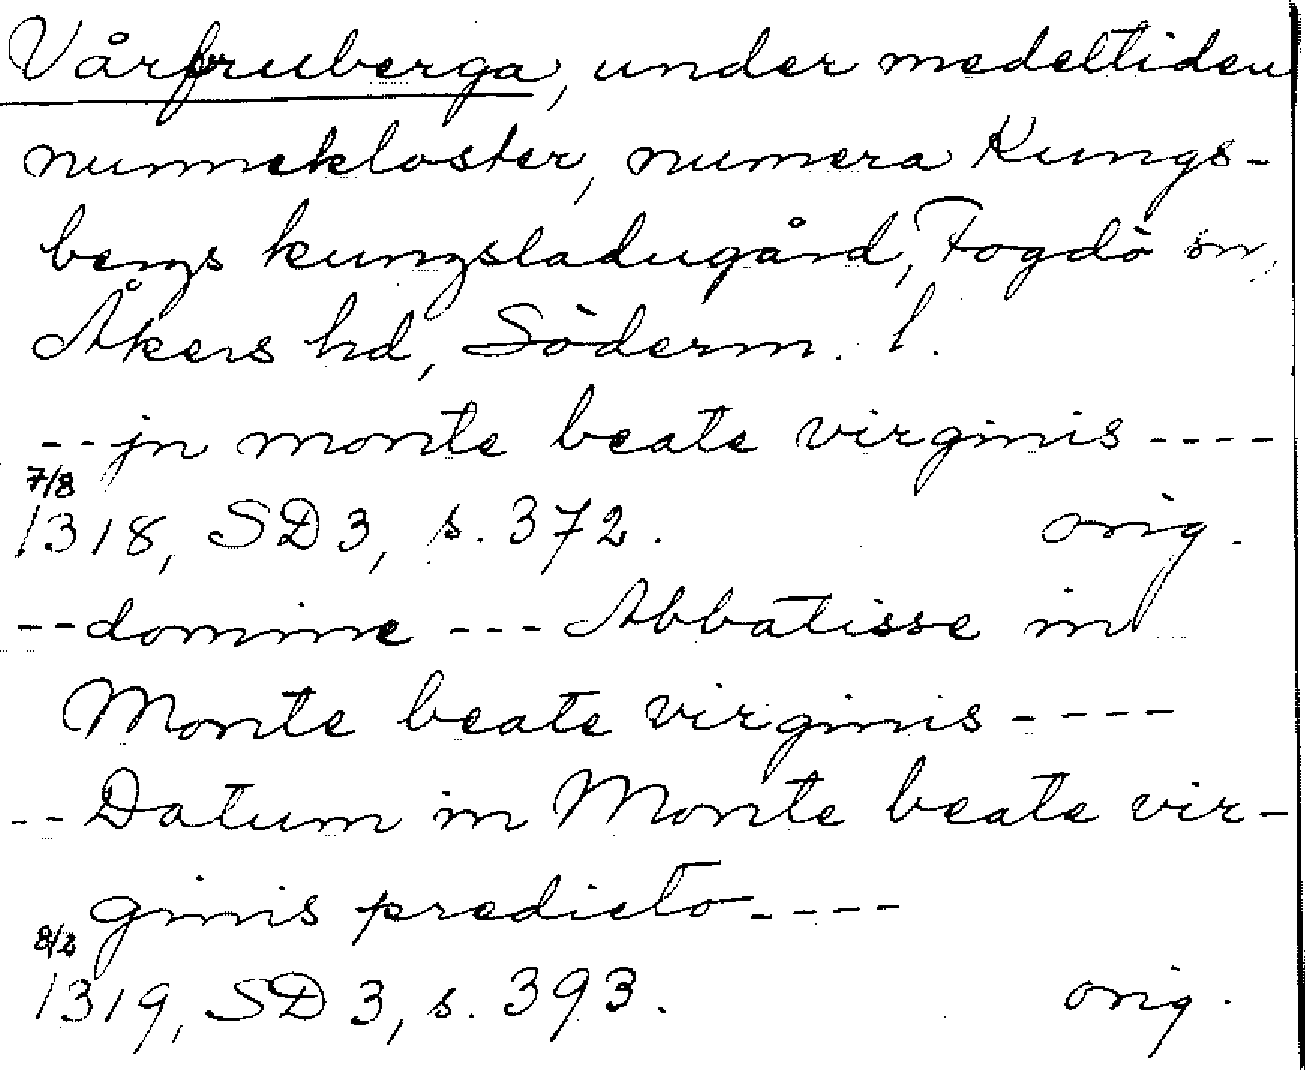 Vårfruberga, under medeltiden
nunnekloster, numera Kungs-
bergs kungsladugård, Fogdö sn,
Åkers hd, Söderm. l.
-- jn monte beate virginis ----
7/8
1318, SD 3, s. 372. orig.
-- domine --- Abbatisse in
Monte beate virginis ----
-- Datum in Monte beate vir-
ginis predicto ----
1319, SD 3, s. 393. orig.